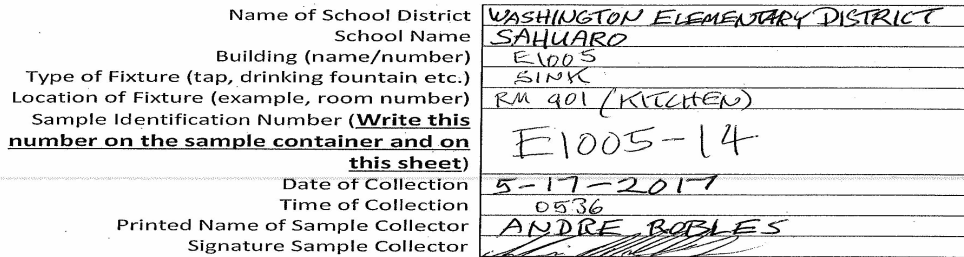 Name of School District WASHINGTON ELEMENTARY DISTRICT
School Name SAHUARO
Building (name/number) E1005
Type of Fixture (tap, drinking fountain etc.) SINK
Location of Fixture (example, room number) RM 901 (KITCHEN)
Sample Identification Number (Write this
number on the sample container and on E1005-14
this sheet)
Date of Collection 5-17-2017
Time of Collection 0536
Printed Name of Sample Collector ANDRE ROBLES
Signature Sample Collector